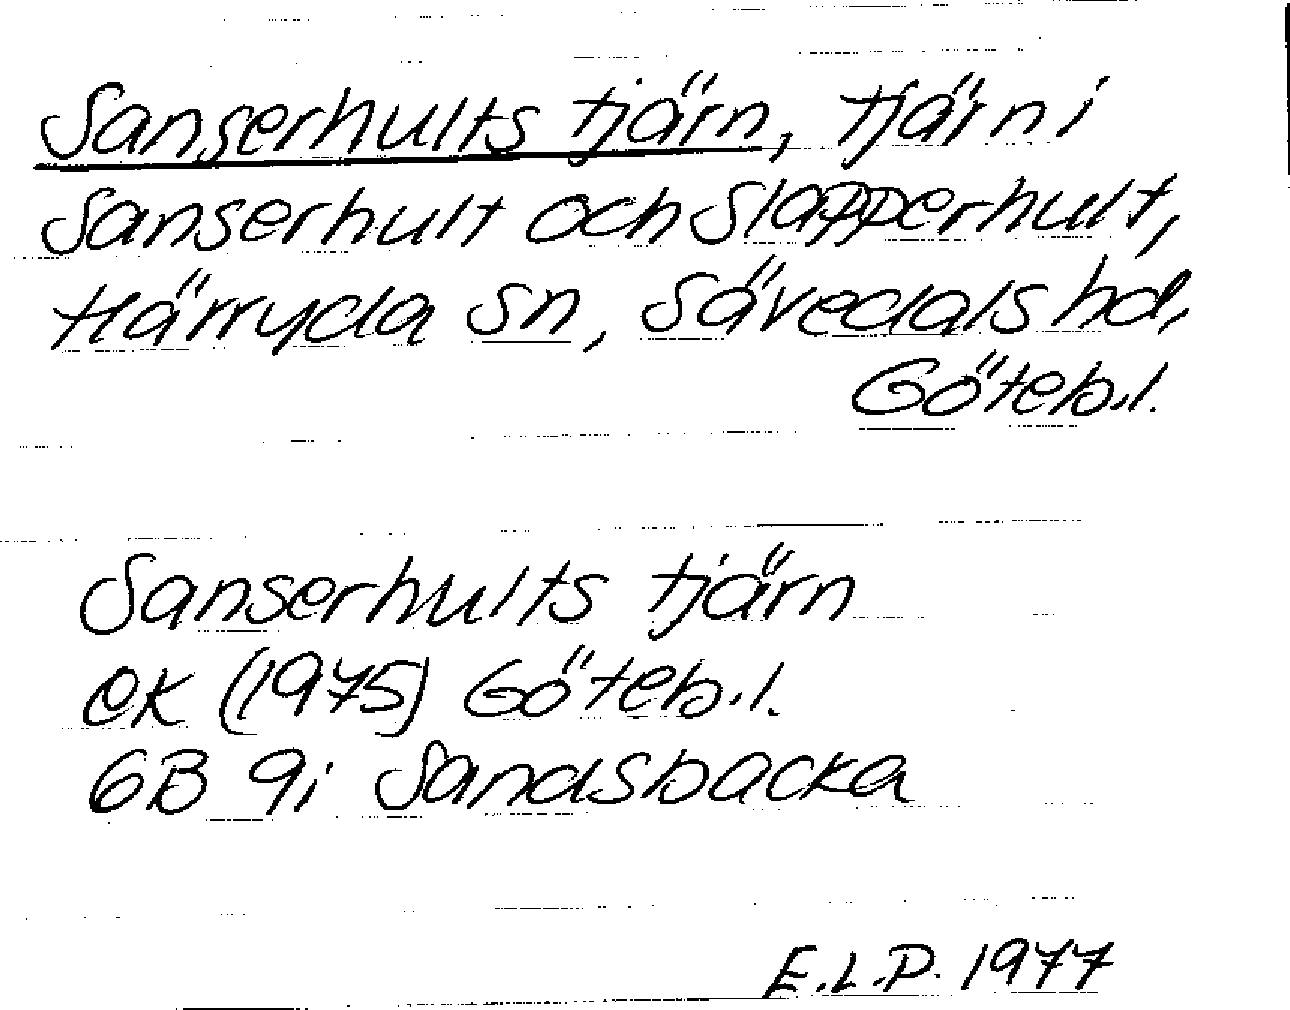 Sanserhults tjärn, tjärn i
Sanserhult och Slapperhult,
Härryda sn, Sävedals hd,
Göteb.l.
Sanserhults tjärn
EK (1975) Göteb.l.
6B 9i Sandsbacka
E.L.P. 1977